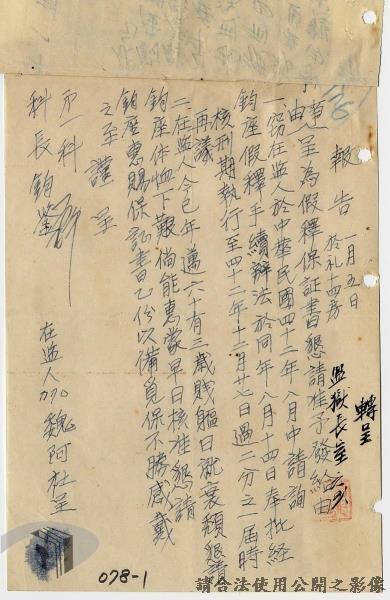 報告 一月五日
於礼十四房
事由 呈為假釋保証書懇請准予發給由
一、窃在监人於中華民國四十二年八月中請詢
鈞座假釋手續辦法於同年八月十四日奉批経
核刑期執行至四十二年十二月廿七日過二分之一届時
再議
二、在监人今已年邁六十有三歲賤軀日就衰頹懇
鈞座体恤下艱倘能惠蒙早日核准懇請
鈞座惠賜保証書乙份以備覓保不勝感戴
之至 謹呈
第一科
科長 鈞鑒
在监人 070 魏阿杜 呈
轉呈
监獄長
078-1
請合法使用公開之影像